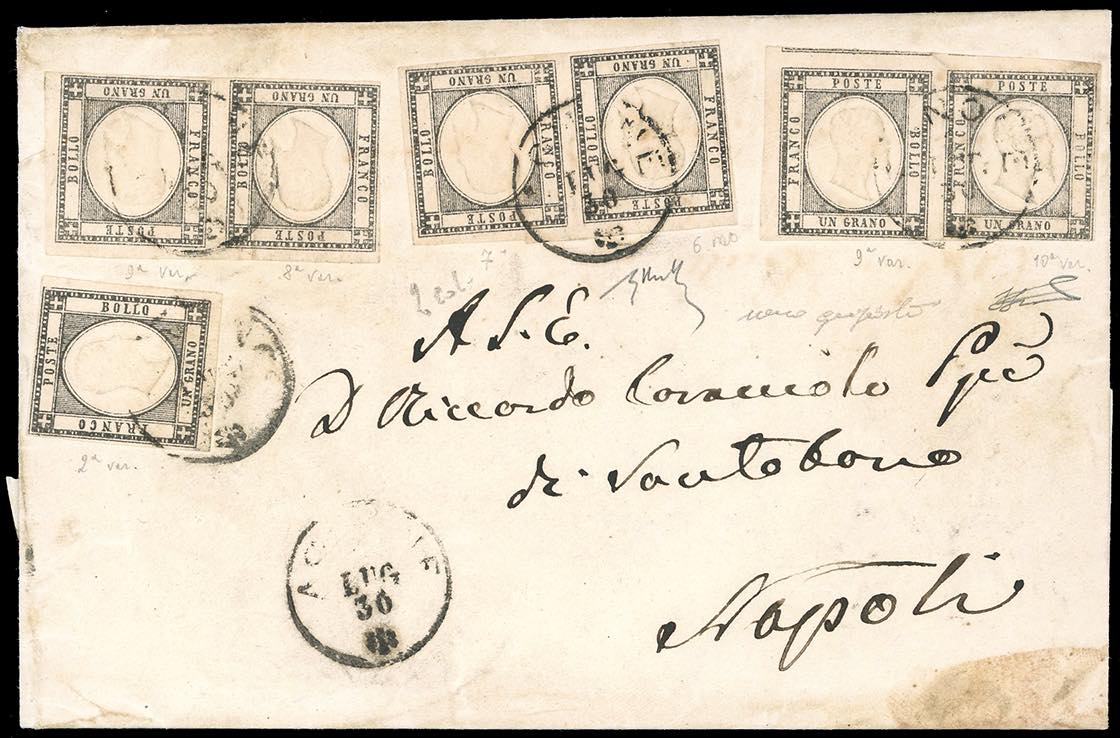 BOLLO UN GRANO FRANCO POSTE
BOLLO UN GRANO FRANCO POSTE
BOLLO UN GRANO FRANCO POSTE
BOLLO UN GRANO FRANCO POSTE
FRANCO POSTE BOLLO UN GRANO
FRANCO POSTE BOLLO UN GRANO
9ª var.
8ª var.
7ª
6
9ª var.
10ª var.
POSTE BOLLO UN GRANO FRANCO
2ª var.
LUG
30
A S. E.
D Riccardo
di Santobono
Napoli
LUG
30